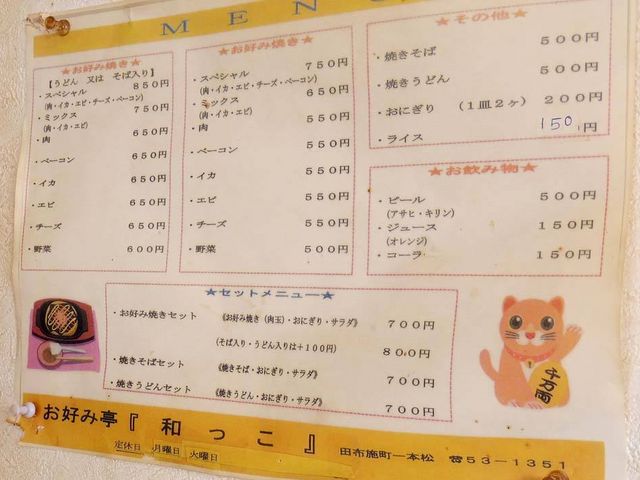 MENU
★お好み焼き★
【うどん 又は そば入り】
・スペシャル 850円
(肉・イカ・エビ・チーズ・ベーコン)
・ミックス 750円
(肉・イカ・エビ)
・肉 650円
・ベーコン 650円
・イカ 650円
・エビ 650円
・チーズ 650円
・野菜 600円
★お好み焼き★
・スペシャル 750円
(肉・イカ・エビ・チーズ・ベーコン)
・ミックス 650円
(肉・イカ・エビ)
・肉 550円
・ベーコン 550円
・イカ 550円
・エビ 550円
・チーズ 550円
・野菜 500円
★その他★
・焼きそば 500円
・焼きうどん 500円
・おにぎり (1皿2ヶ) 200円
・ライス 150円
★お飲み物★
・ビール 500円
(アサヒ・キリン)
・ジュース 150円
(オレンジ)
・コーラ 150円
★セットメニュー★
・お好み焼きセット 《お好み焼き(肉玉)・おにぎり・サラダ》 700円
(そば入り・うどん入りは+100円) 800円
・焼きそばセット 《焼きそば・おにぎり・サラダ》 700円
・焼きうどんセット 《焼きうどん・おにぎり・サラダ》 700円
千万両
お好み亭『和っこ』 田布施町一本松 ☎53-1351
定休日 月曜日 火曜日